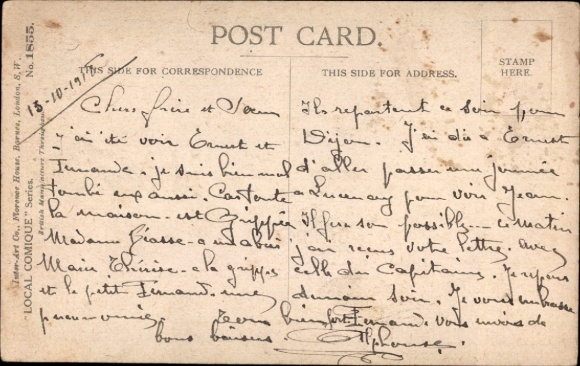 POST CARD.
THIS SIDE FOR CORRESPONDENCE
THIS SIDE FOR ADDRESS.
STAMP
HERE.
Inter-Art Co., Florence House, Barnes, London, S.W.
"LOCAL COMIQUE" Series. No. 1855.
British Manufacture Throughout.
13-10-191
Chers frère et Soeur
j'ai été voir Ernest et
Fernande. je suis bien mal
tombé eux aussi. Car toute
la maison est Grippée
Madame a un abcès
Marie Thérèse a la grippe
et le petit Fernand. une
pneumonie. Tous
bons baisers.
Ils repartent ce soir pour
Dijon. J'ai dis à Ernest
d'aller passer un journée
a Lucenay pour voir Jean.
Il fera son possible. ce matin
j'ai reçus votre lettre. avec
celle du Capitaine. je repars
demain soir. Je vous embrasse
bien fort. Fernande vous envois de
Alphonse.